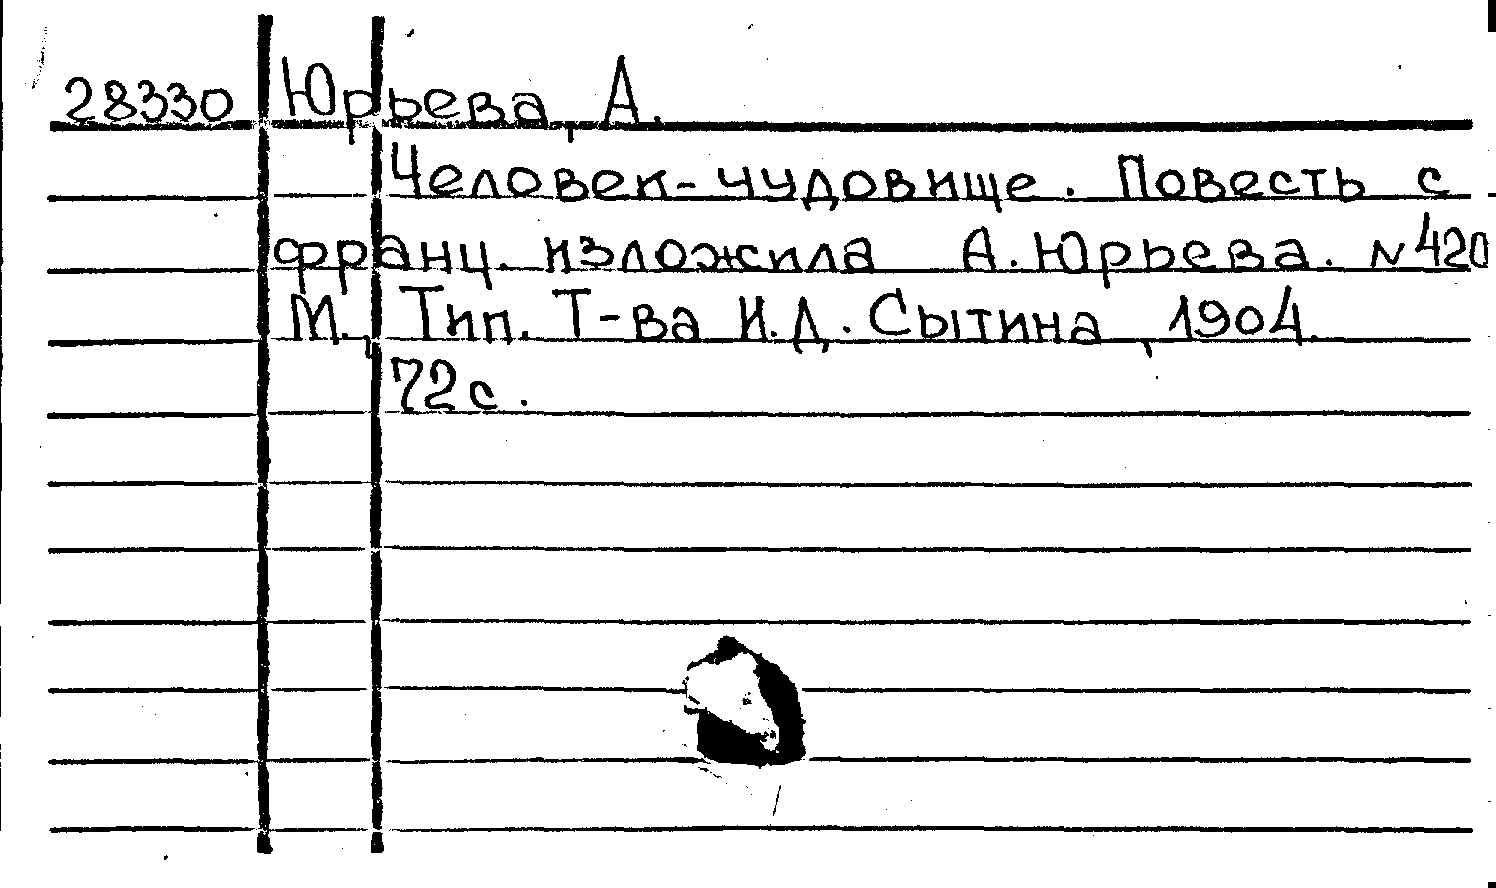 28330 Юрьева, А.
Человек-чудовище. Повесть с
франц. изложила А.Юрьева. N420
М., Тип. Т-ва И.Д. Сытина, 1904.
72с.